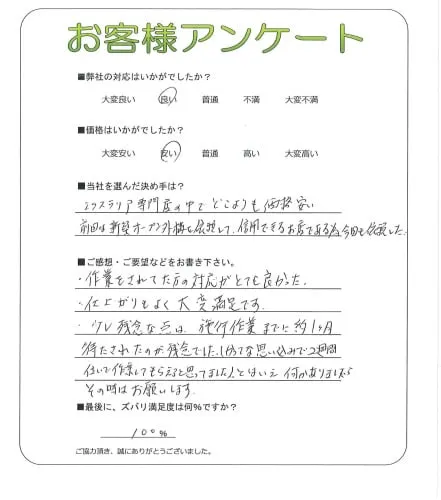 お客様アンケート
■弊社の対応はいかがでしたか？
大変良い 良い 普通 不満 大変不満
■価格はいかがでしたか？
大変安い 安い 普通 高い 大変高い
■当社を選んだ決め手は？
エクステリア専門店の中でどこよりも価格安い
前回は新築オープン外構を依頼して、信用できるお店である為今回も依頼した。
■ご感想・ご要望などをお書き下さい。
・作業をされてた方の対応がとても良かった。
・仕上がりもよく大変満足です。
・少し残念な点は、施行作業までに約1ヶ月
待たされたのが残念でした。(勝手な思い込みで2週間
位いで作業してもらえると思ってました)とはいえ何かありましたら
その時はお願いします。
■最後に、ズバリ満足度は何％ですか？
100%
ご協力頂き、誠にありがとうございました。